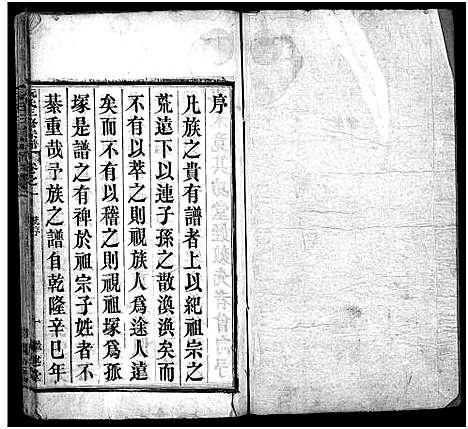 序
凡族之貴有譜者上以紀祖宗之
荒遠下以連子孫之散渙渙矣而
不有以萃之則視族人為途人遠
矣而不有以稽之則視祖塚為孤
塚是譜之有裨於祖宗子姓者不
綦重哉予族之譜自乾隆辛巳年